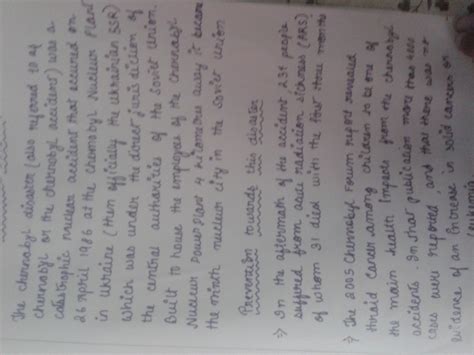 The chernobyl disaster (also referred to as
chernobyl or the chernobyl accident) was a
catastrophic nuclear accident that occured on
26 April 1986 at the chernobyl Nuclear Plant
in ukraine (then officially the ukrainian SSR)
which was under the direct juris diction of
the central authorities of the soviet union.
Built to house the employees of the chernobyl
Nuclear Power Plant 4 kilometres away it became
the ninth nuclear city in the soviet union
Prevention towards this disaster
⇒ In the aftermath of the accident 237 people
suffered from acute radiation sickness (ARS)
of whom 31 died with the first three months
⇒ The 2005 chernobyl Forum report revealed
thiroid cancer among children to be one of
the main health impacts from the chernobyl
accidents. In that publication more than 4000
cases were reported, and that there was no
evidence of an increase in solid cancers or